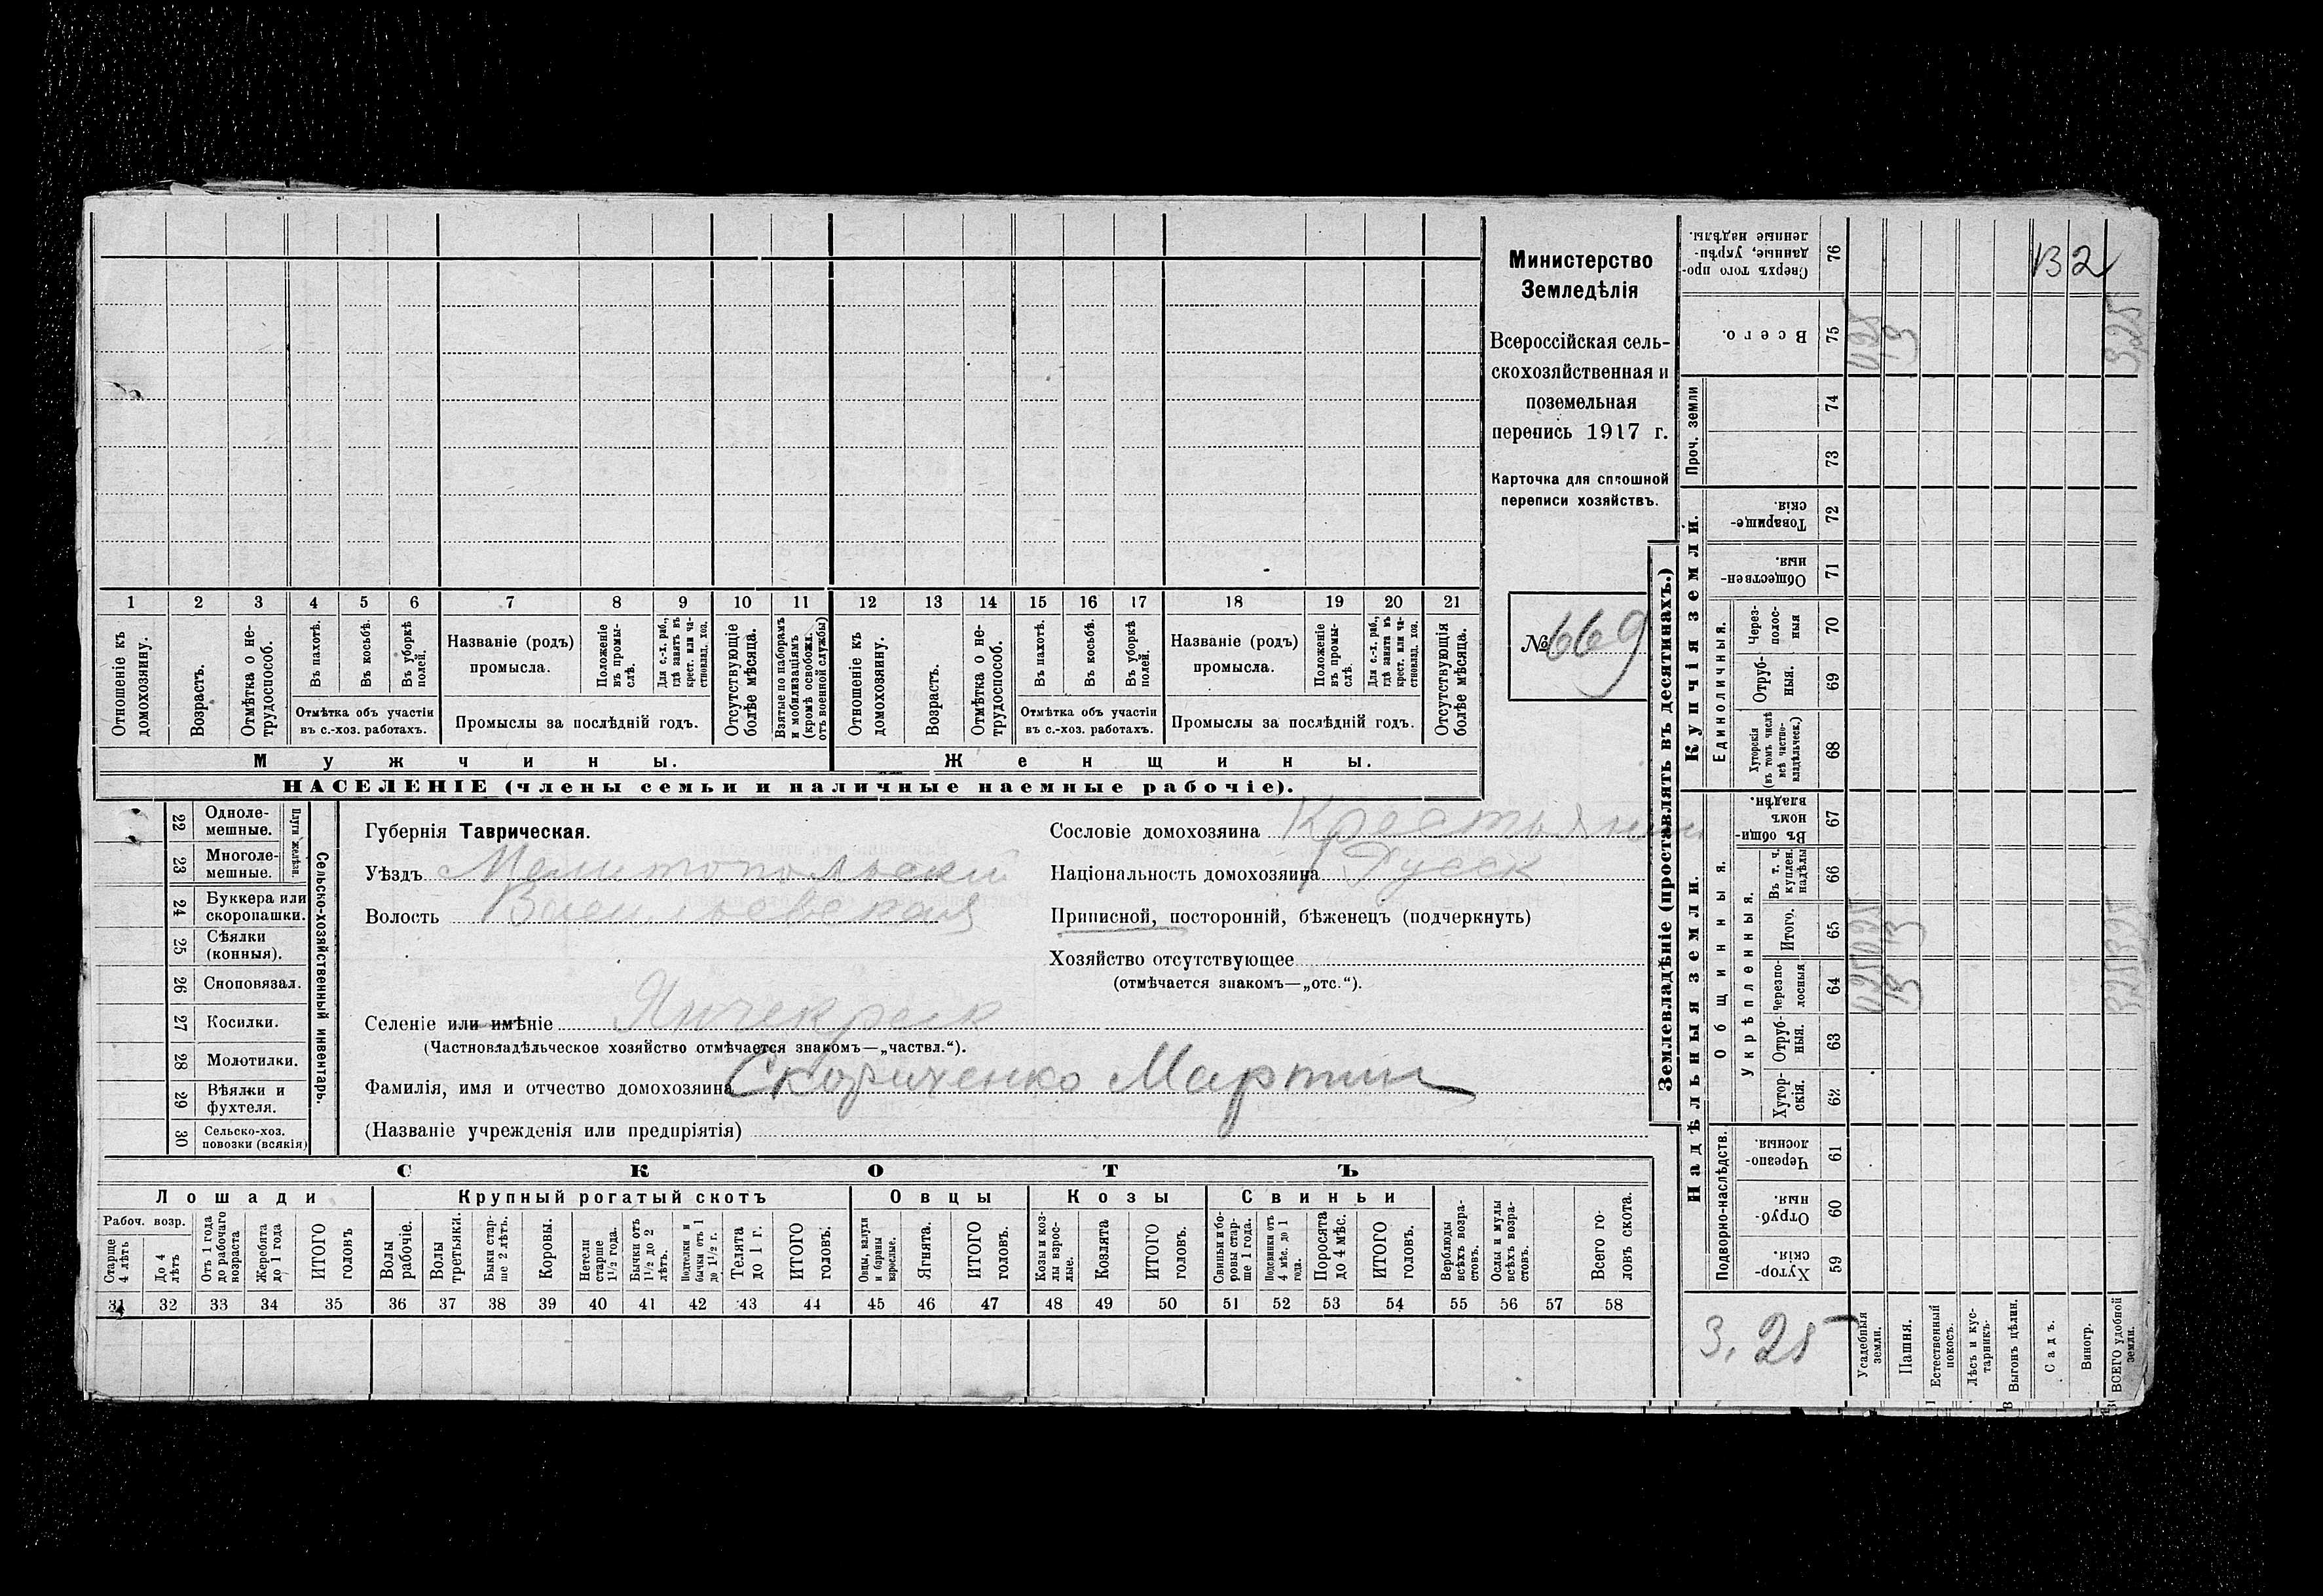 Министерство
Земледѣлія
Всероссійская сель-
скохозяйственная и
поземельная
перепись 1917 г.
Карточка для сплошной
переписи хозяйствъ.
№ 669
1 2 3 4 5 6 7 8 9 10 11 12 13 14 15 16 17 18 19 20 21
Отношеніе къ домохозяину.
Возрастъ.
Отмѣтка о не-трудоспособ.
Въ пахотѣ.
Въ косьбѣ.
Въ уборкѣ полей.
Отмѣтка объ участіи
въ с.-хоз. работахъ.
Названіе (родъ)
промысла.
Положеніе въ промы-слѣ.
Для с.-х. раб., гдѣ занятъ въ крест. или ча-стновлад. хоз.
Промыслы за послѣдній годъ.
Отсутствующіе болѣе мѣсяца.
Взятые по наборамъ и мобилизаціямъ (кромѣ освобожд. отъ военной службы)
Отношеніе къ домохозяину.
Возрастъ.
Отмѣтка о не-трудоспособ.
Въ пахотѣ.
Въ косьбѣ.
Въ уборкѣ полей.
Отмѣтка объ участіи
въ с.-хоз. работахъ.
Названіе (родъ)
промысла.
Положеніе въ промы-слѣ.
Для с.-х. раб., гдѣ занята въ крест. или ча-стновлад. хоз.
Промыслы за послѣдній годъ.
Отсутствующія болѣе мѣсяца.
Мужчины.
Женщины.
НАСЕЛЕНІЕ (члены семьи и наличные наемные рабочіе).
22 Одноле-мешные.
23 Многоле-мешные.
Плуги желѣзн.
24 Буккера или скоропашки.
25 Сѣялки (конныя).
26 Сноповязал.
27 Косилки.
28 Молотилки.
29 Вѣялки и фухтеля.
30 Сельско-хоз. повозки (всякія)
Сельско-хозяйственный инвентарь.
Губернія Таврическая.
Уѣздъ Мелитопольскій
Волость Васильевская
Селеніе или имѣніе Янчекрак
(Частновладѣльческое хозяйство отмѣчается знакомъ—„частвл.“).
Фамилія, имя и отчество домохозяина Мартин
(Названіе учрежденія или предпріятія)
Сословіе домохозяина Крестьянин
Національность домохозяина Русск
Приписной, посторонній, бѣженец (подчеркнуть)
Хозяйство отсутствующее
(отмѣчается знакомъ—„отс.“).
СКОТЪ
Лошади
Крупный рогатый скотъ
Овцы
Козы
Свиньи
Рабоч. возр.
Старше 4 лѣтъ
До 4 лѣтъ
Отъ 1 года до рабочаго возраста
Жеребята до 1 года
ИТОГО головъ
Волы рабочіе.
Волы третьяки.
Быки стар-ше 2 лѣтъ.
Коровы.
Нетели старше 1 1/2 года.
Бычки отъ 1 1/2 до 2 лѣтъ.
Подтелки и бычки отъ 1 до 1 1/2 г.
Телята до 1 г.
ИТОГО головъ.
Овцы, валухи и бараны взрослые.
Ягнята.
ИТОГО головъ.
Козы и коз-лы взрос-лые.
Козлята
ИТОГО головъ.
Свиньи и бо-ровы стар-ше 1 года.
Подсвинки отъ 4 мѣс. до 1 года.
Поросята до 4 мѣс.
ИТОГО головъ.
Верблюды всѣхъ возра-стовъ.
Ослы и мулы всѣхъ возра-стовъ.
Всего го-ловъ скота.
31 32 33 34 35 36 37 38 39 40 41 42 43 44 45 46 47 48 49 50 51 52 53 54 55 56 57 58
Землевладѣніе (проставлять въ десятинахъ.)
Купчія земли.
Надѣльныя земли.
Проч. земли
Единоличныя.
Общинныя.
Укрѣпленныя.
Подворно-наслѣдств.
Сверхъ того про-данные, укрѣп-ленные надѣлы. 76
132
Всего. 75
3,25
74
73
Товарище-скія 72
Обществен-ныя. 71
Через-полос-ныя 70
Отруб-ныя. 69
Хуторскія (въ томъ числѣ всѣ частно-владѣльческ.) 68
Въ общи-номъ владѣн. 67
Въ т. ч. куплен. надѣлы 66
Итого. 65
Черезпо-лосныя 64
Отруб-ныя. 63
Хутор-скія. 62
Черезпо-лосныя. 61
Отруб-ныя. 60
Хутор-скія. 59
3,25
Усадебныя земли.
Пашня.
Естественный покосъ.
Лѣсъ и кус-тарникъ.
Выгонъ цѣлин.
Садъ.
Виногр.
ВСЕГО удобной земли.